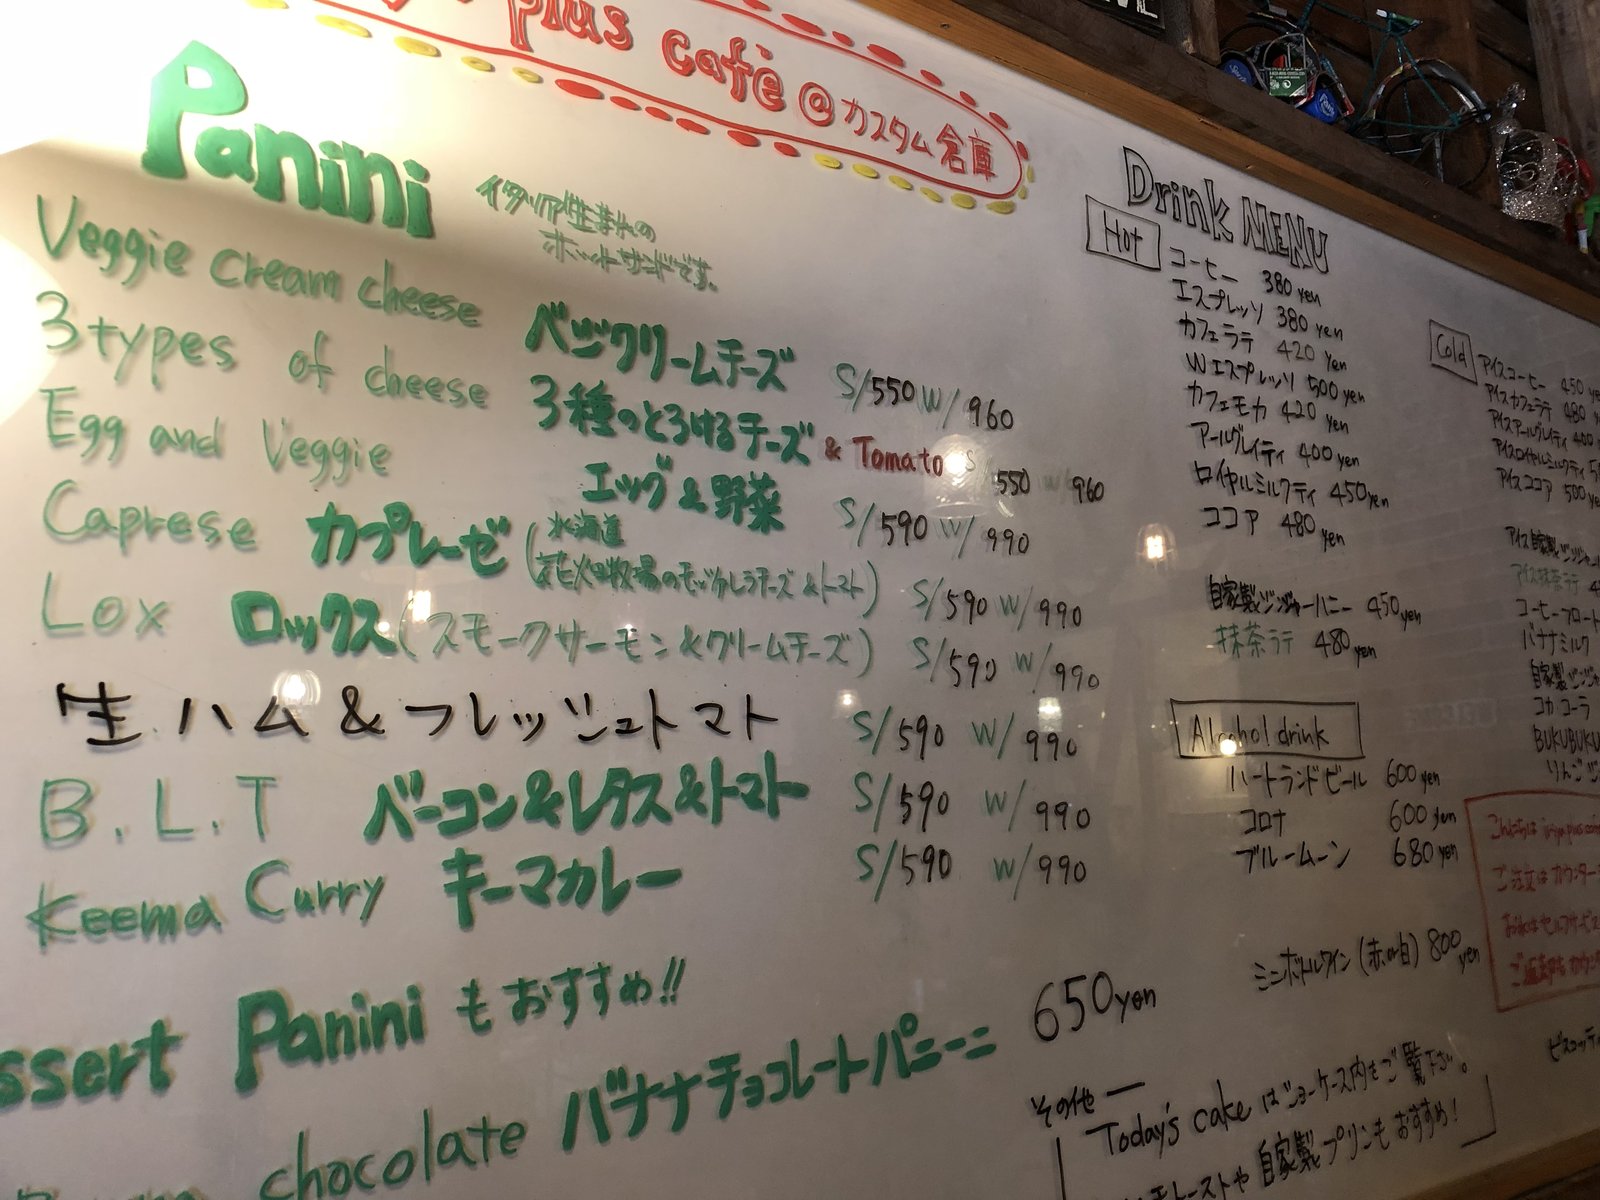 plus café @ カスタム倉庫
Panini
イタリア生まれの
ホットサンドです。
Veggie cream cheese ベジクリームチーズ S/550 W/960
3 types of cheese 3種のとろけるチーズ & Tomato S/550 W/960
Egg and Veggie エッグ&野菜 S/590 W/990
Caprese カプレーゼ (北海道
花畑牧場のモッツァレラチーズ&トマト) S/590 W/990
Lox ロックス (スモークサーモン&クリームチーズ) S/590 W/990
生ハム&フレッシュトマト S/590 W/990
B.L.T ベーコン&レタス&トマト S/590 W/990
Keema Curry キーマカレー S/590 W/990
ssert Panini もおすすめ!!
chocolate バナナチョコレートパニーニ 650yen
Drink MENU
Hot
コーヒー 380 yen
エスプレッソ 380 yen
カフェラテ 420 yen
Wエスプレッソ 500 yen
カフェモカ 420 yen
アールグレイティ 400 yen
ロイヤルミルクティ 450yen
ココア 480 yen
自家製ジンジャーハニー 450yen
抹茶ラテ 480yen
Alcohol drink
ハートランドビール 600 yen
コロナ 600 yen
ブルームーン 680 yen
ミニボトルワイン (赤or白) 800 yen
その他
Today's cake はショーケース内をご覧下さい。
自家製プリンもおすすめ!
Cold
アイスコーヒー 450
アイスカフェラテ 480
アイスアールグレイティ 400
アイスロイヤルミルクティ
アイスココア 500
アイス自家製ジンジャー
アイス抹茶ラテ
コーヒーフロート
バナナミルク
自家製ジンジャ
コカコーラ
BUKUBUKU
りんごジ
こんにちは iriya plus
ご注文はカウンター
お水はセルフサービス
ビスコッティ